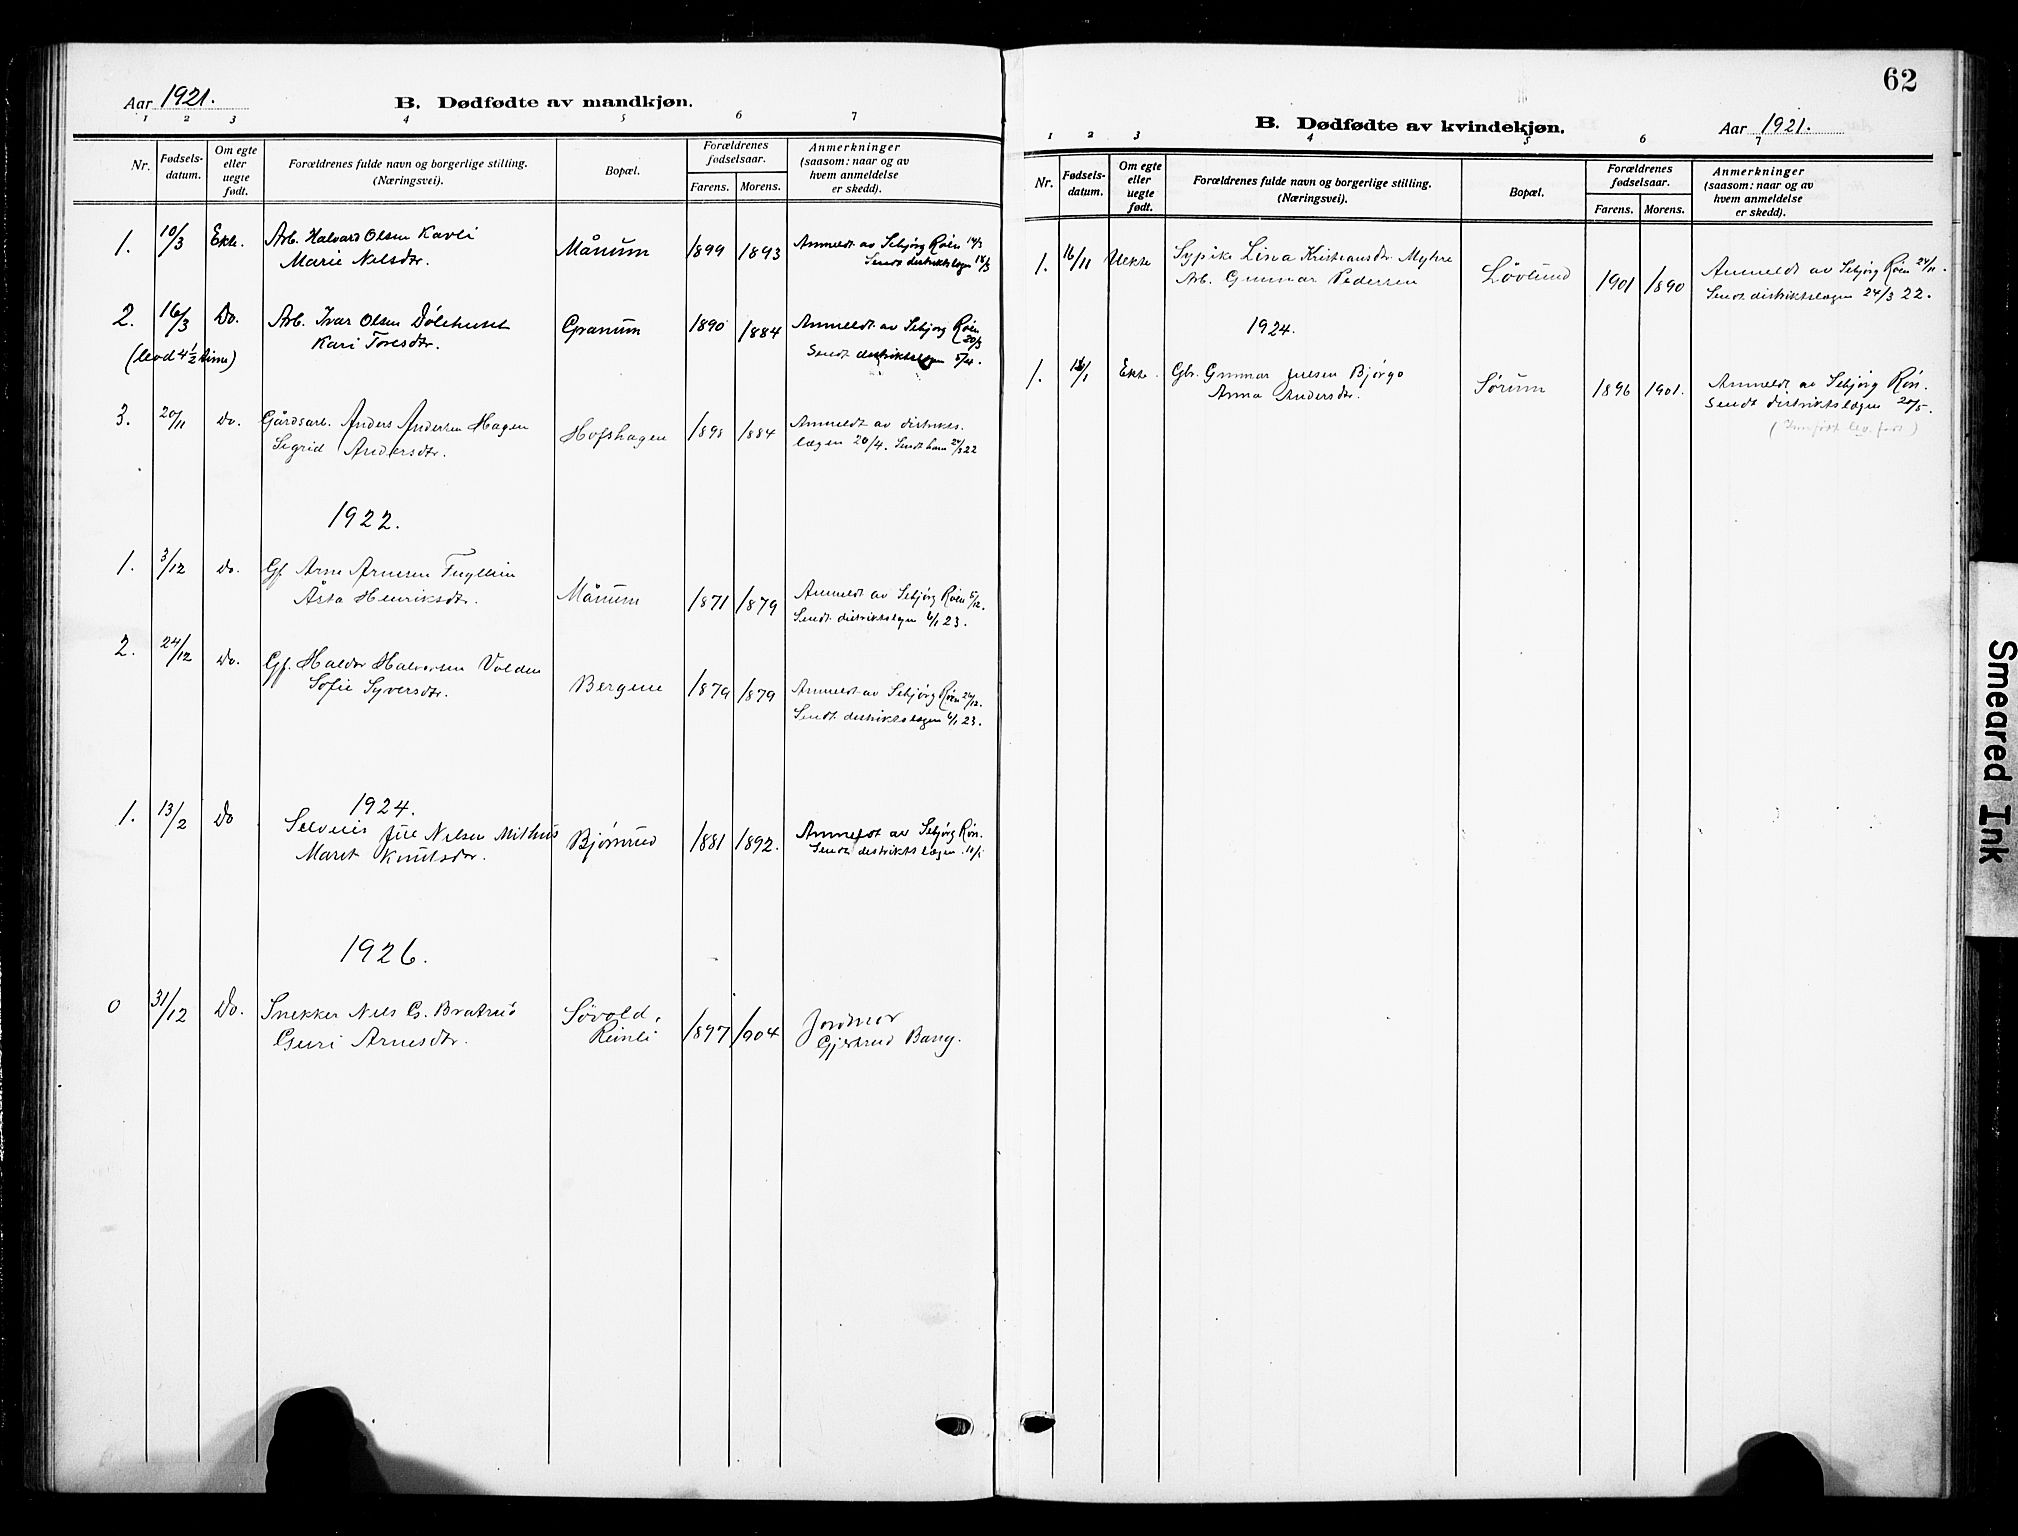 Aar 1921.
B. Dødfødte av mandkjøn.
1 2 3 4 5 6 7
Nr.
Fødsels-
datum.
Om egte
eller
uegte
født.
Forældrenes fulde navn og borgerlige stilling.
(Næringsvei).
Bopæl.
Forældrenes
fødselsaar.
Farens. Morens.
Anmerkninger
(saasom: naar og av
hvem anmeldelse
er skedd).
1. 10/3 Ekte. Arb. Halvard Olsen Kavli Månum 1899 1893 Anmeldt av Sebjørg Røen 14/3
Marie Nilsdtr. Sendt distriktslægen 18/3
2. 16/3 Do. Arb. Ivar Olsen Dølehuset Granum 1890 1884 Anmeldt av Sebjørg Røen 20/3
(levd 4 1/2 time) Kari Toresdtr. Sendt distriktslægen 5/4.
3. 20/11 Do. Gårdsarb. Anders Andersen Hagen Hofshagen 1898 1884 Anmeldt av distrikts-
Sigrid Andersdtr. lægen 20/4. Sendt ham 24/3 22
1922.
1. 3/12 Do. Gf. Arne Arnesen Månum 1871 1879 Anmeldt av Sebjørg Røen 5/12.
Åsta Henriksdtr. Sendt distriktslægen 6/1 23.
2. 24/12 Do. Gf. Haldor Halvorsen Volden Bergene 1879 1879 Anmeldt av Sebjørg Røen 26/12.
Sofie Syversdtr. Sendt distriktslægen 6/1 23.
1924.
1. 13/2 Do Selveier Nilsen Mithus Bjørnrud 1881 1892. Anmeldt av Sebjørg Røn.
Marit Knutsdtr. Sendt distriktslægen
1926.
0 31/12 Do. Snekker Nils G. Bratrud Søvold, 1897 1904 Jordmor
Guri Arnesdtr. Reinli Gjertrud Bang.
62
B. Dødfødte av kvindekjøn.
Aar 1921.
1 2 3 4 5 6 7
Nr.
Fødsels-
datum.
Om egte
eller
uegte
født.
Forældrenes fulde navn og borgerlige stilling.
(Næringsvei).
Bopæl.
Forældrenes
fødselsaar.
Farens. Morens.
Anmerkninger
(saasom: naar og av
hvem anmeldelse
er skedd).
1. 16/11 Uekte Sypike Lina Kristiansdtr Myhre Løvlund 1901 1890 Anmeldt av Sebjørg Røen 24/11.
Arb. Gunnar Pedersen Sendt distriktslægen 24/3 22.
1924.
1. Ekte. Gbr. Gunnar Bjørgo Sørum 1896 1901. Anmeldt av Sebjørg Røn.
Anna Andersdtr. Sendt distriktslægen 20/5.
Smeared Ink